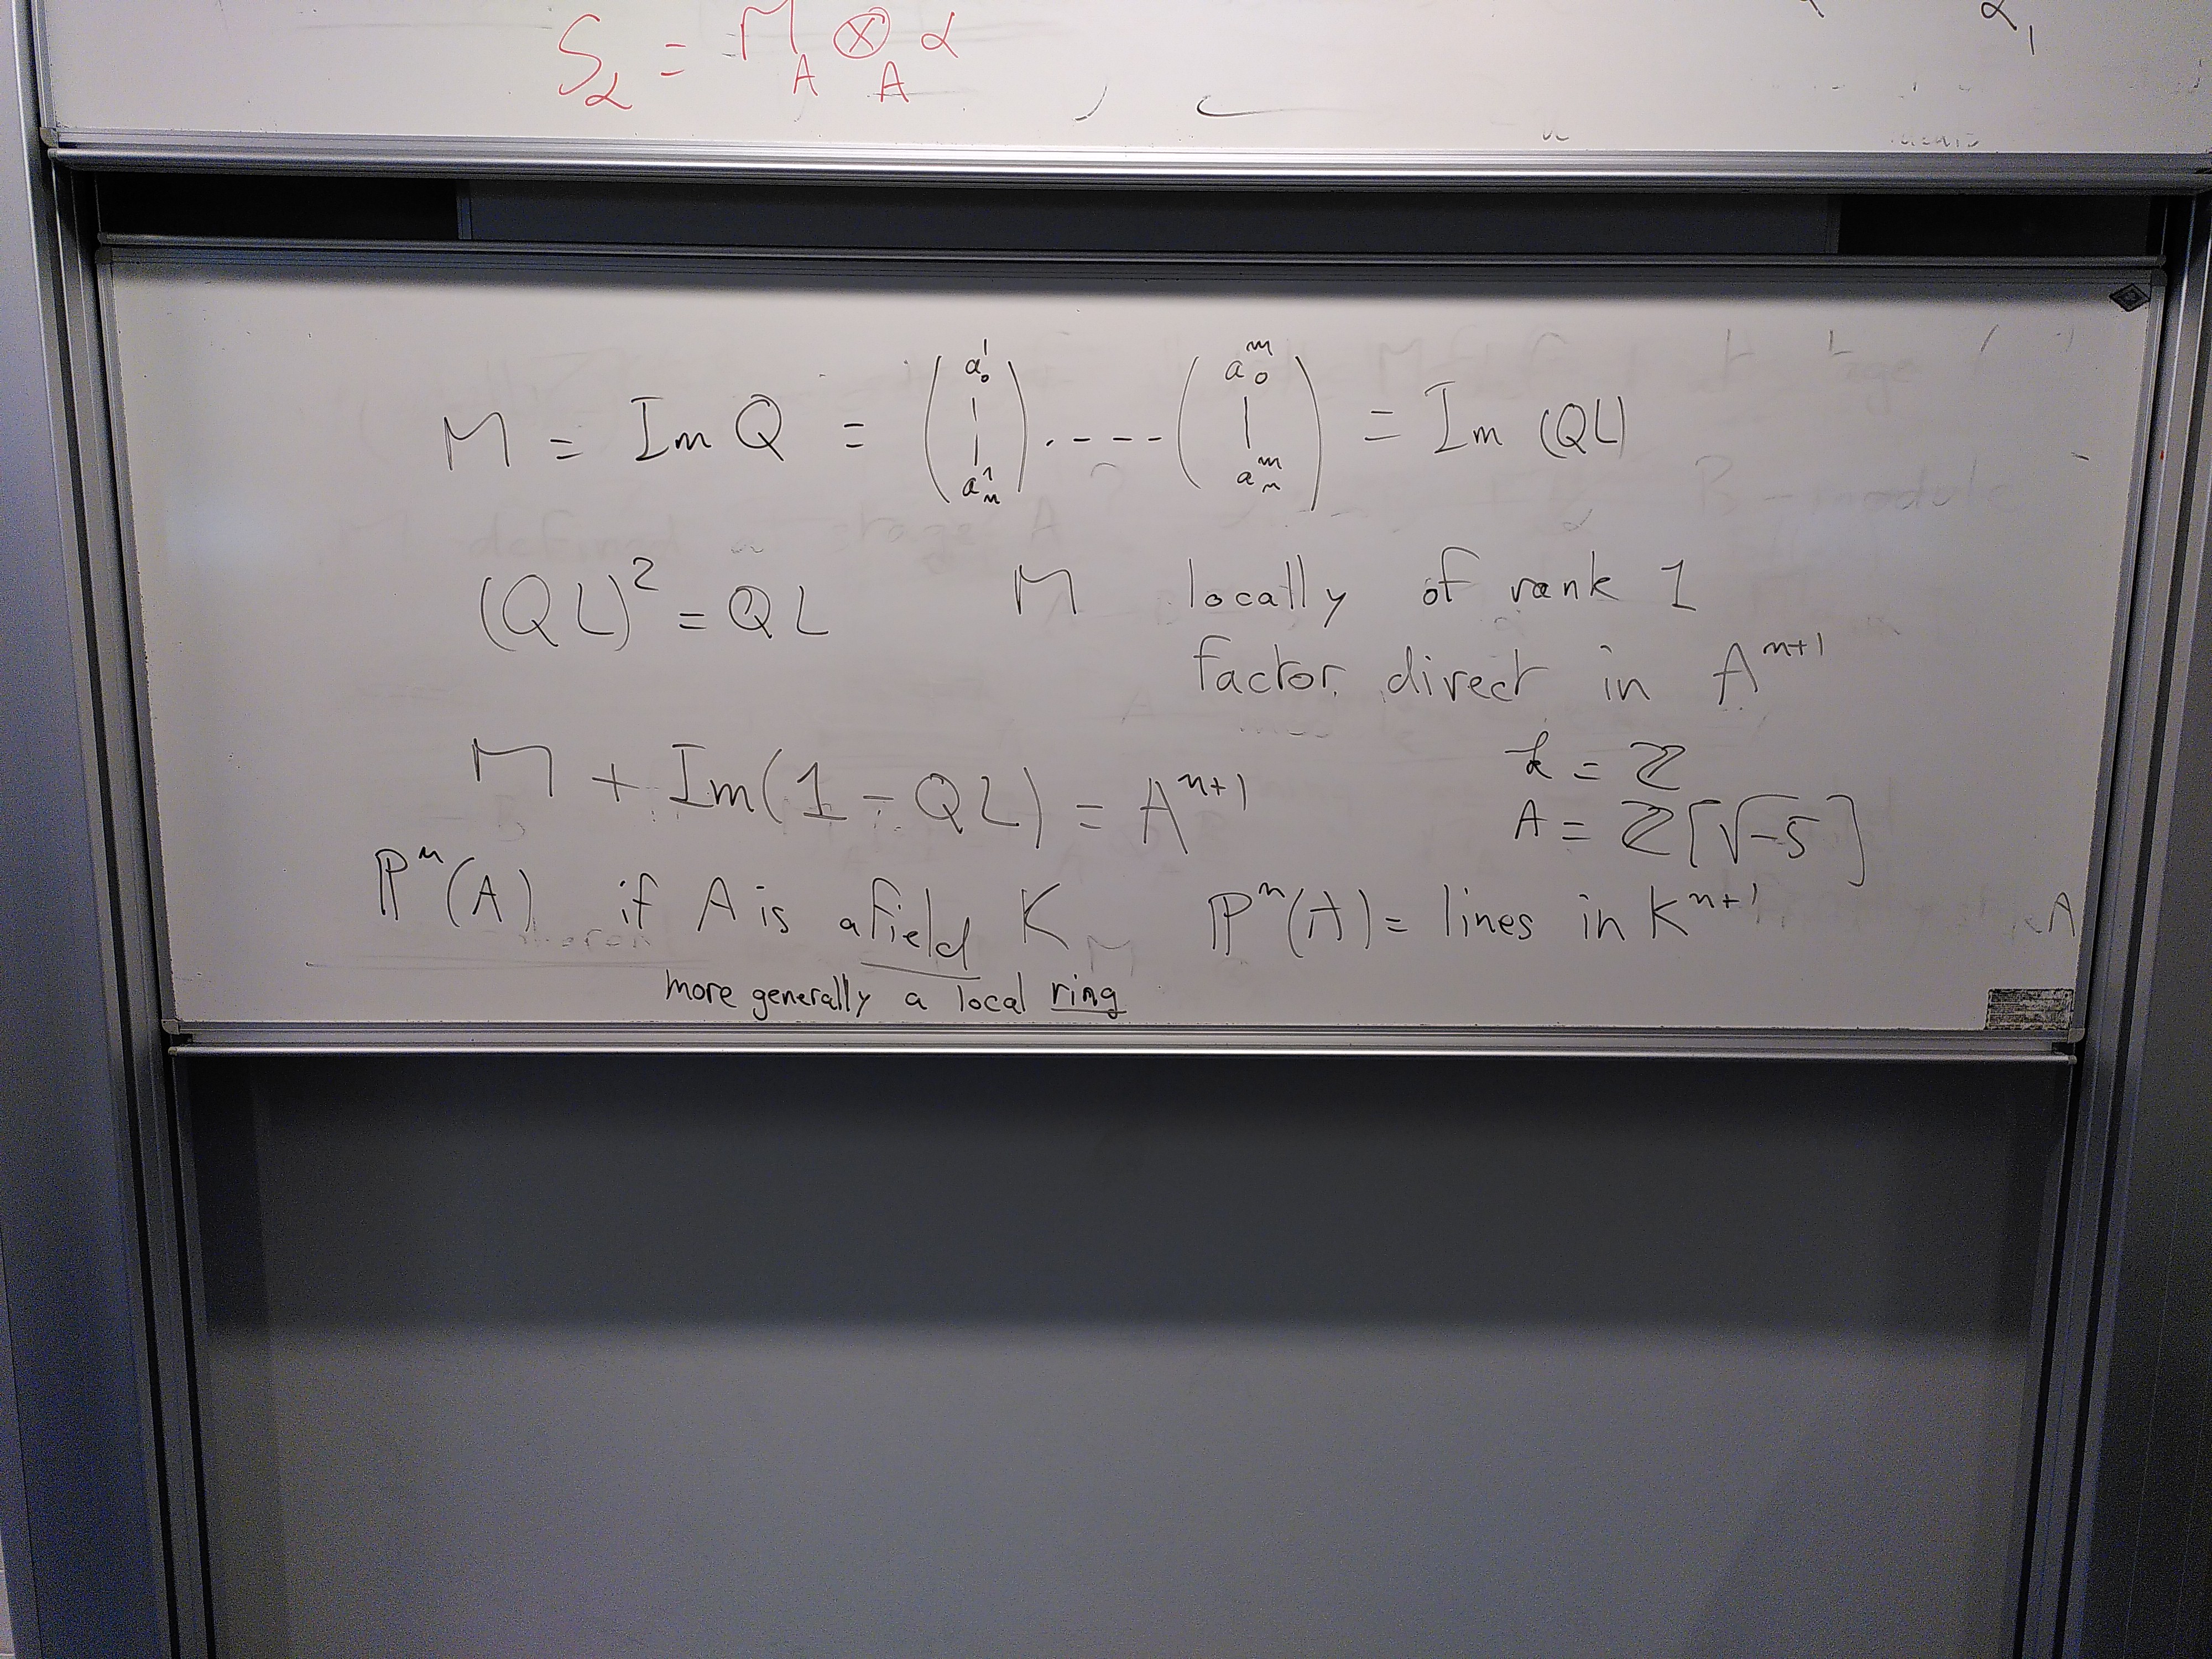 S_α = M_A ⊗_A α
α_1
M = Im Q = (a_0^1 | | a_n^1) . - - - - (a_0^m | a_n^m) = Im (QL)
(QL)^2 = QL M locally of rank 1
factor direct in A^{n+1}
M + Im(1 - QL) = A^{n+1}
k = ℤ
A = ℤ[√-5]
ℙ^n(A) if A is a field K ℙ^n(A) = lines in K^{n+1}
more generally a local ring